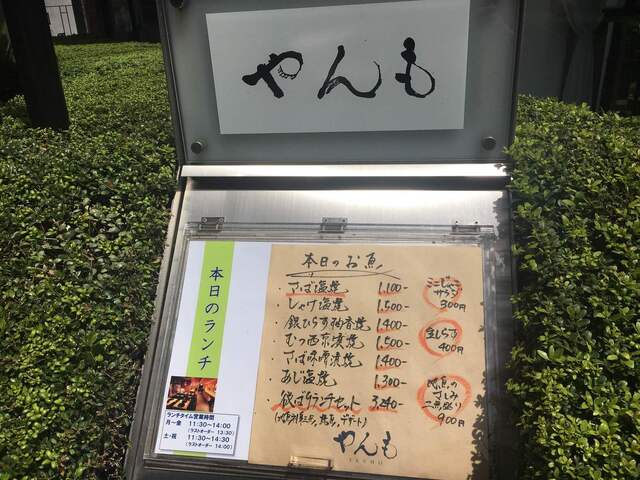 やんも
本日のランチ
ランチタイム営業時間
月～金 11:30～14:00
(ラストオーダー 13:30)
土・祝 11:30～14:30
(ラストオーダー 14:00)
本日のお魚
・さば塩焼 1,100-
・しゃけ塩焼 1,500-
・銀ひらす柚香焼 1,400-
・むつ西京漬焼 1,500-
・さば味噌漬焼 1,400-
・あじ塩焼 1,300-
・銀ひらランチセット 3,240-
デザート)
ミニじゃこ
サラダ
300円
生しらす
400円
さしみ
二点盛り
900円
やんも
YANMO